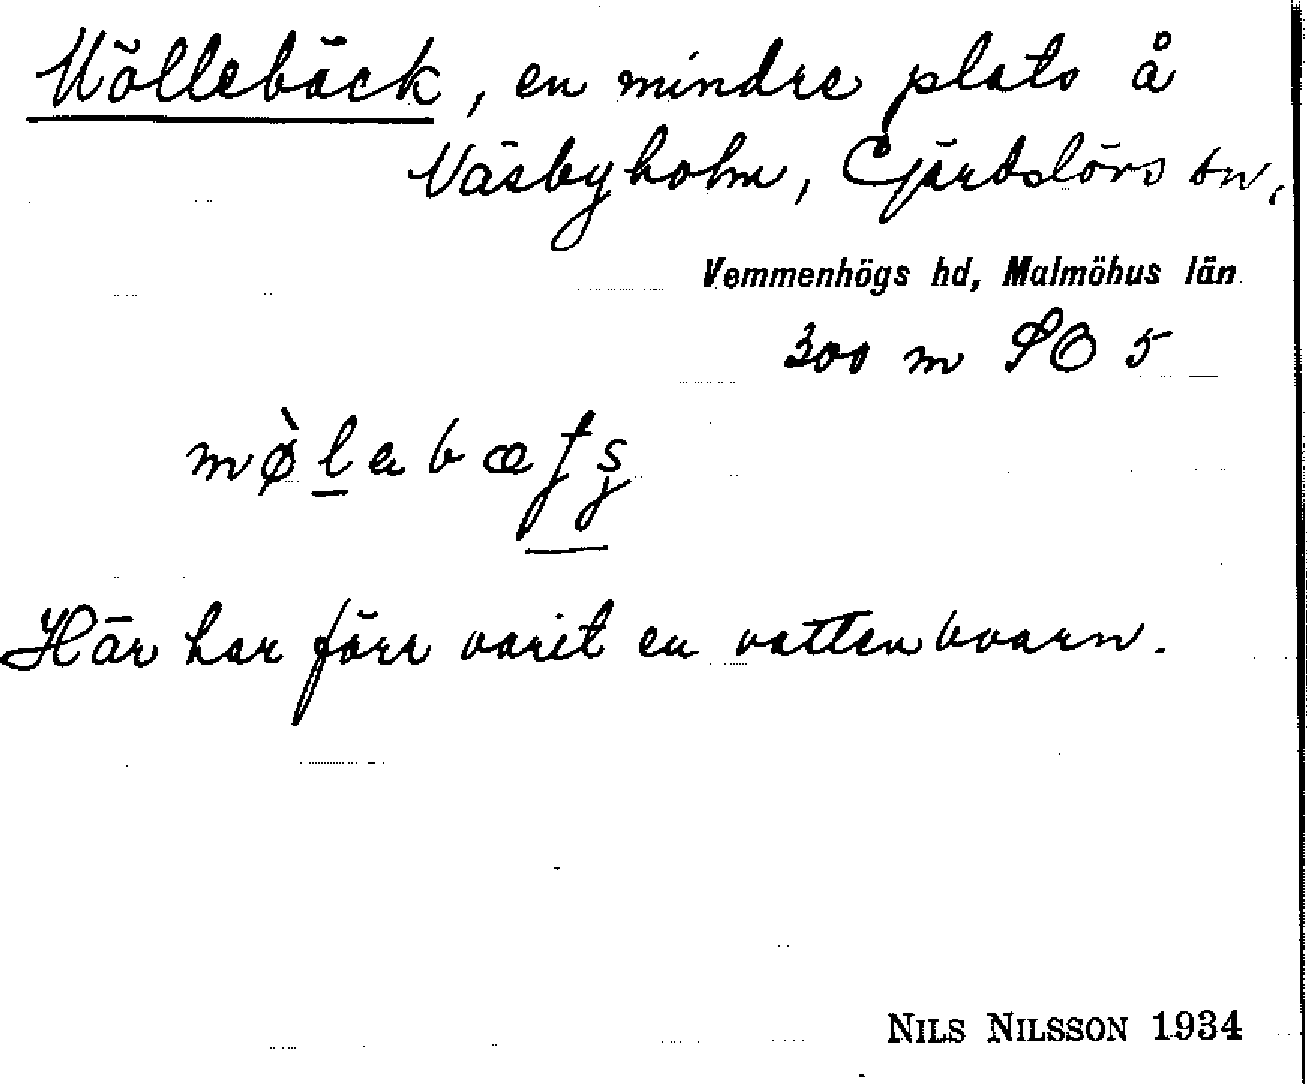 Möllebäck, en mindre plats å
Näsbyholm, Gärdslövs sn,
Vemmenhögs hd, Malmöhus län
300 m SO 5
Här har förr varit en vattenkvarn.
NILS NILSSON 1934